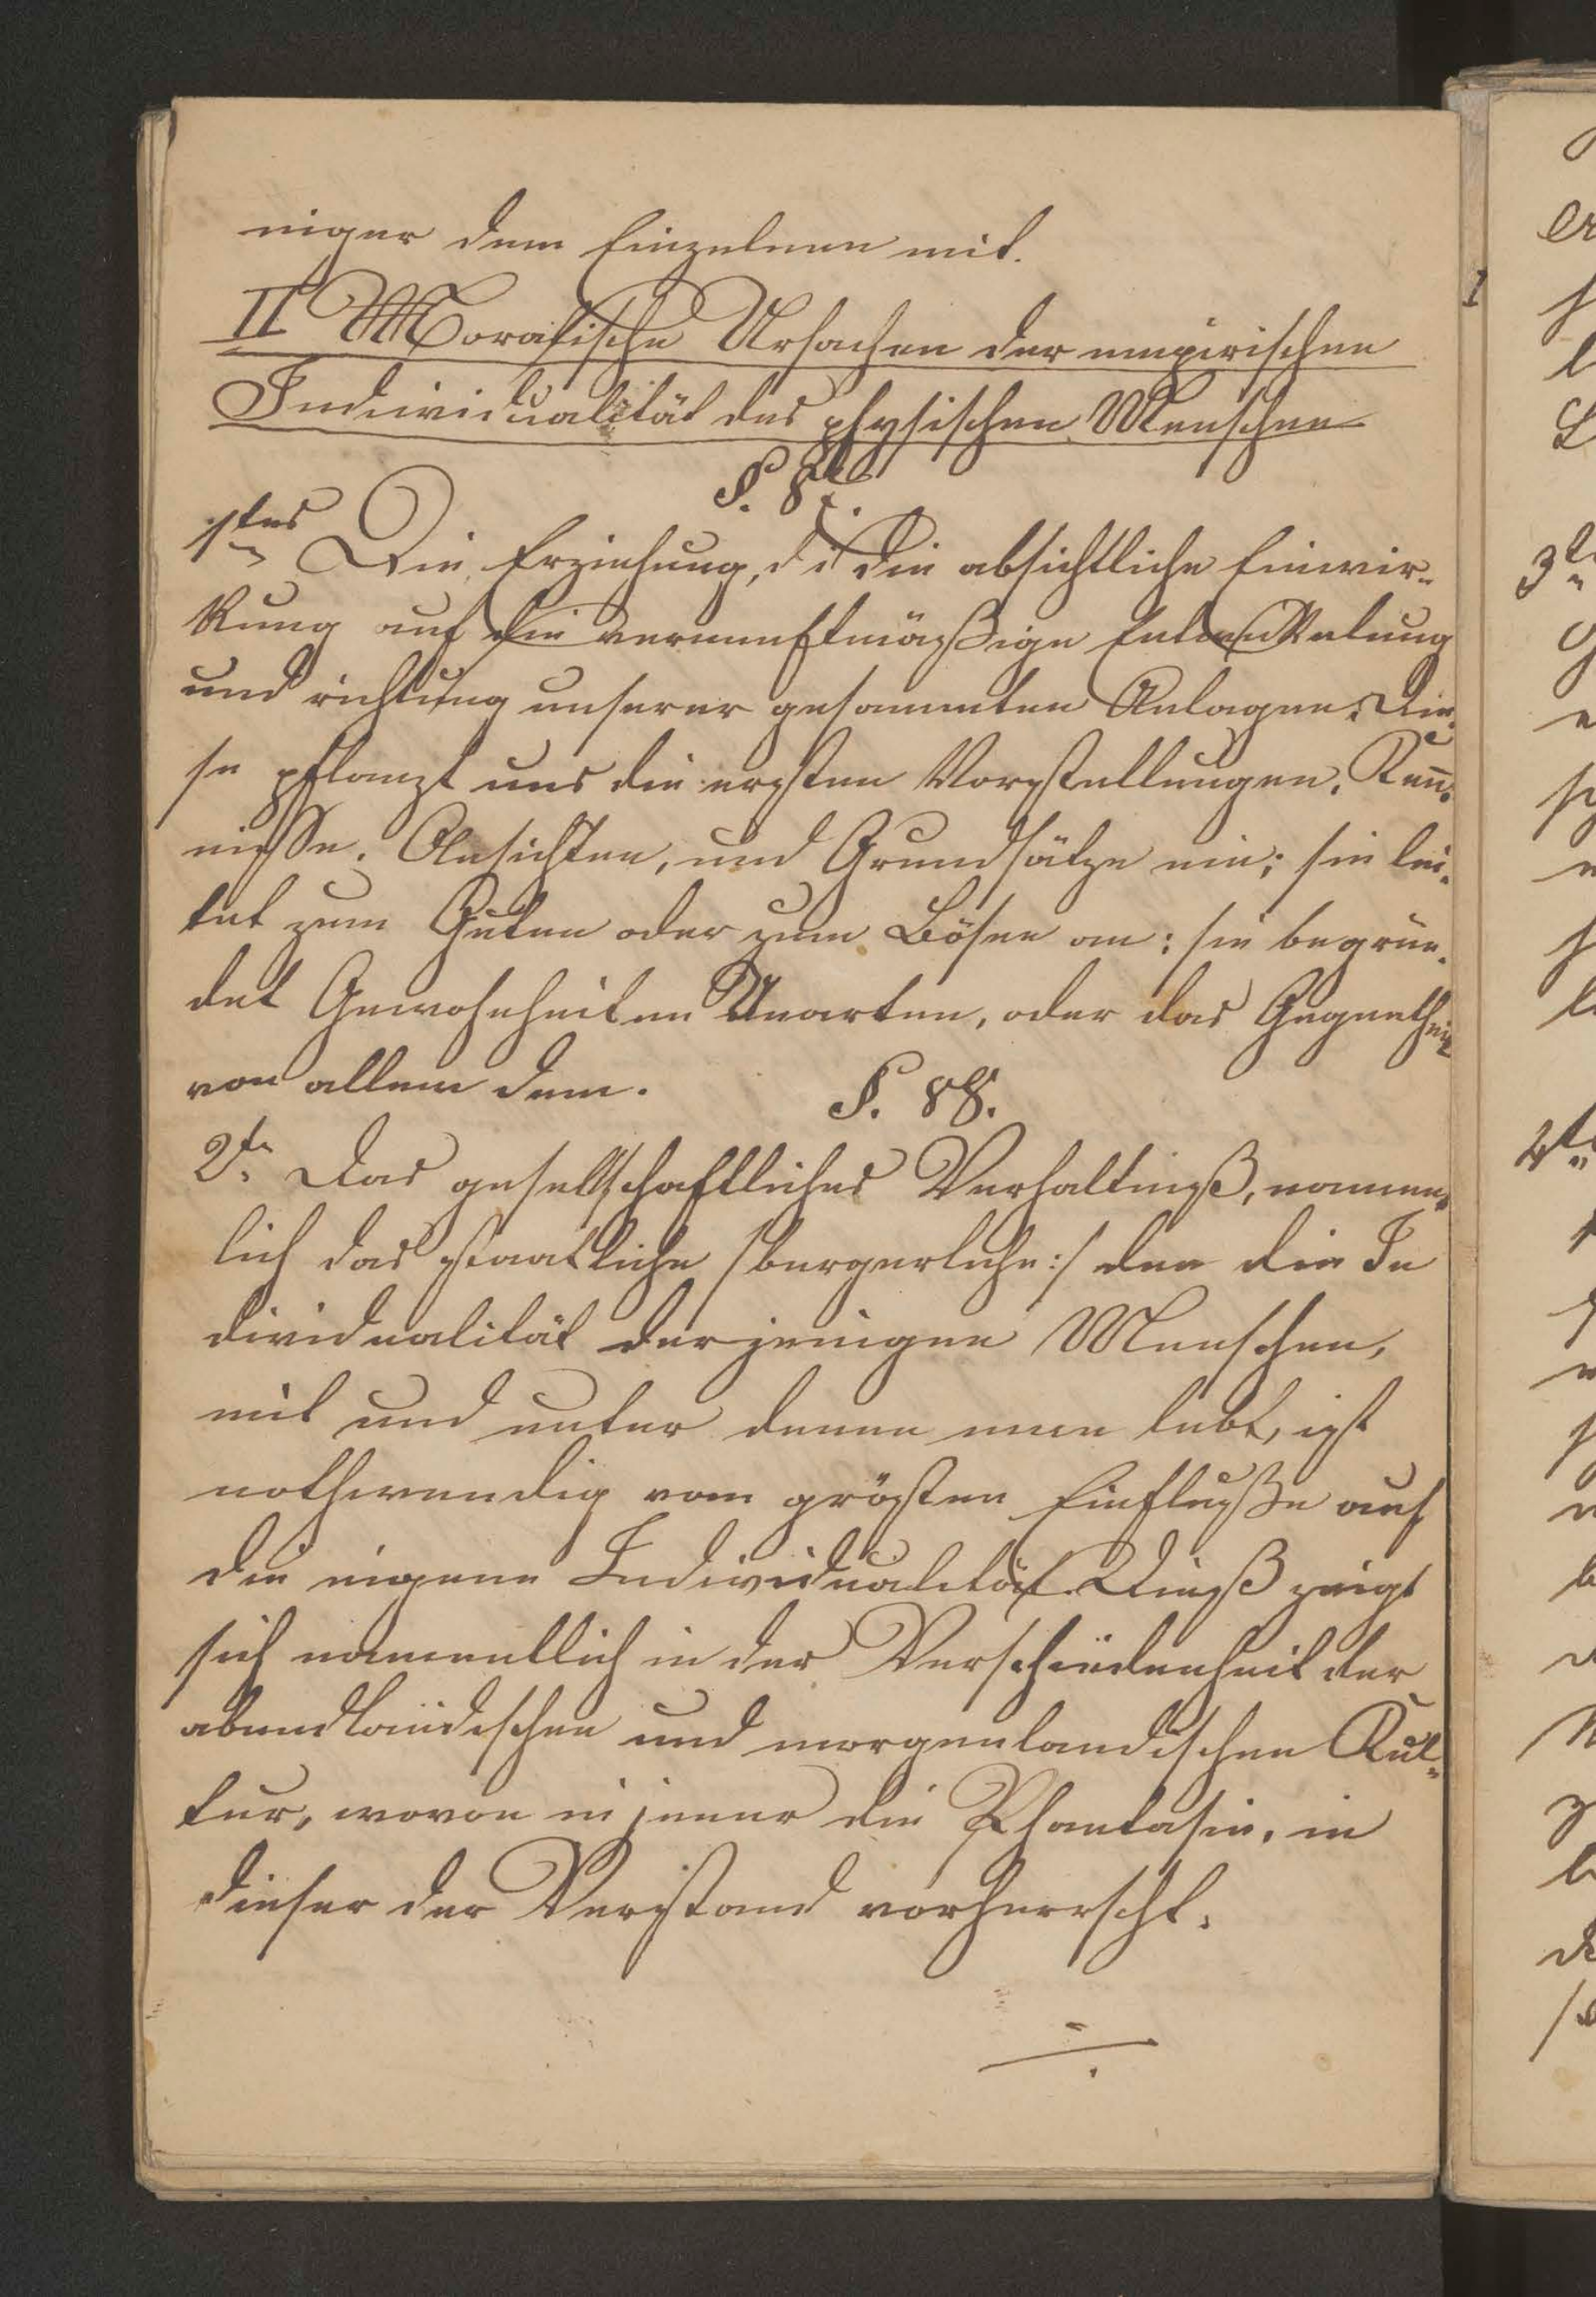 niger dem Einzelnen mit.
II Moralische Ursachen der empirischen
Individualität des physischen Menschen
§. 87.
1tens Die Erziehung, d i die absichtliche Einwir-
kung auf die vernunftmäßige Entwickelung
und richtung unserer gesammten Anlagen. Die-
se pflanzt uns die ersten Vorstellungen, Ken̅-
nisse, Ansichten, und Grundsätze ein; sie lei-
tet zum Guten oder zum Bösen an; sie begrün-
det Gewohnheiten Unarten, oder das Gegentheil
von allem dem.
§. 88.
2te Das gesellschaftliches Verhaltniß, namen-
lich das staatliche /burgerliche:/ den die In
dividualität derjenigen Menschen,
mit und unter denen man lebt, ist
nothwendig vom grösten Einfluße auf
die eigene Individualität. Dieß zeigt
sich namentlich in der Verschiedenheit der
abendländischen und morgenlandischen Kul-
tur, wovon in jener die Phantasie, in
dieser der Verstand vorherrscht.